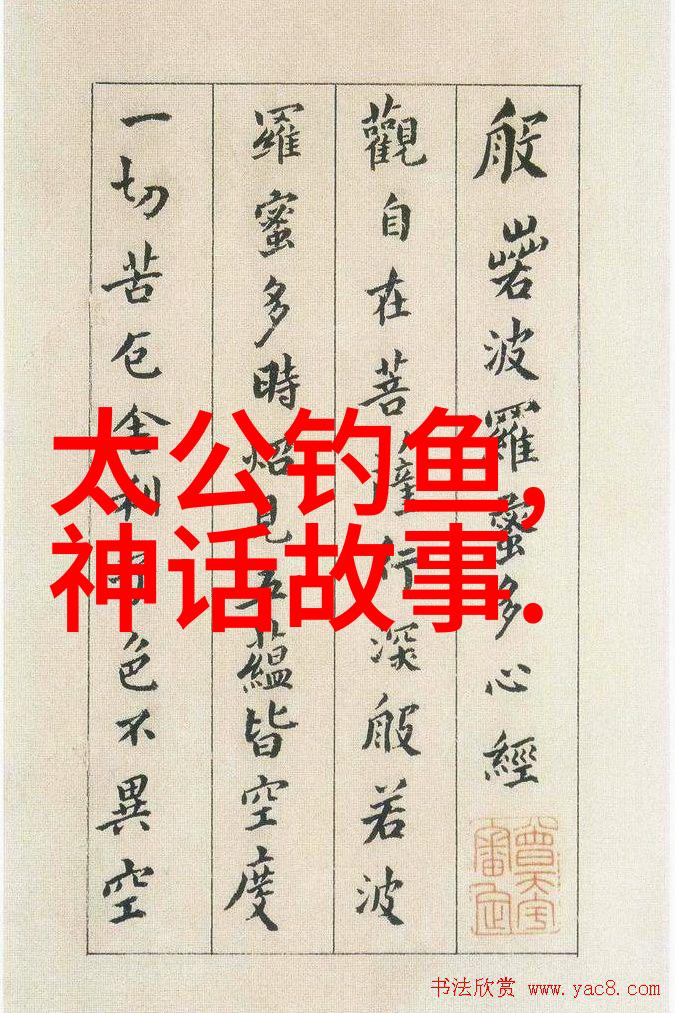 般若波羅蜜多心經
觀自在菩薩行深般若波
羅蜜多時照見五蘊皆空度
一切苦厄舍利子色不異空
太公钓鱼,
神话故事.
书法欣赏 www.yac8.com